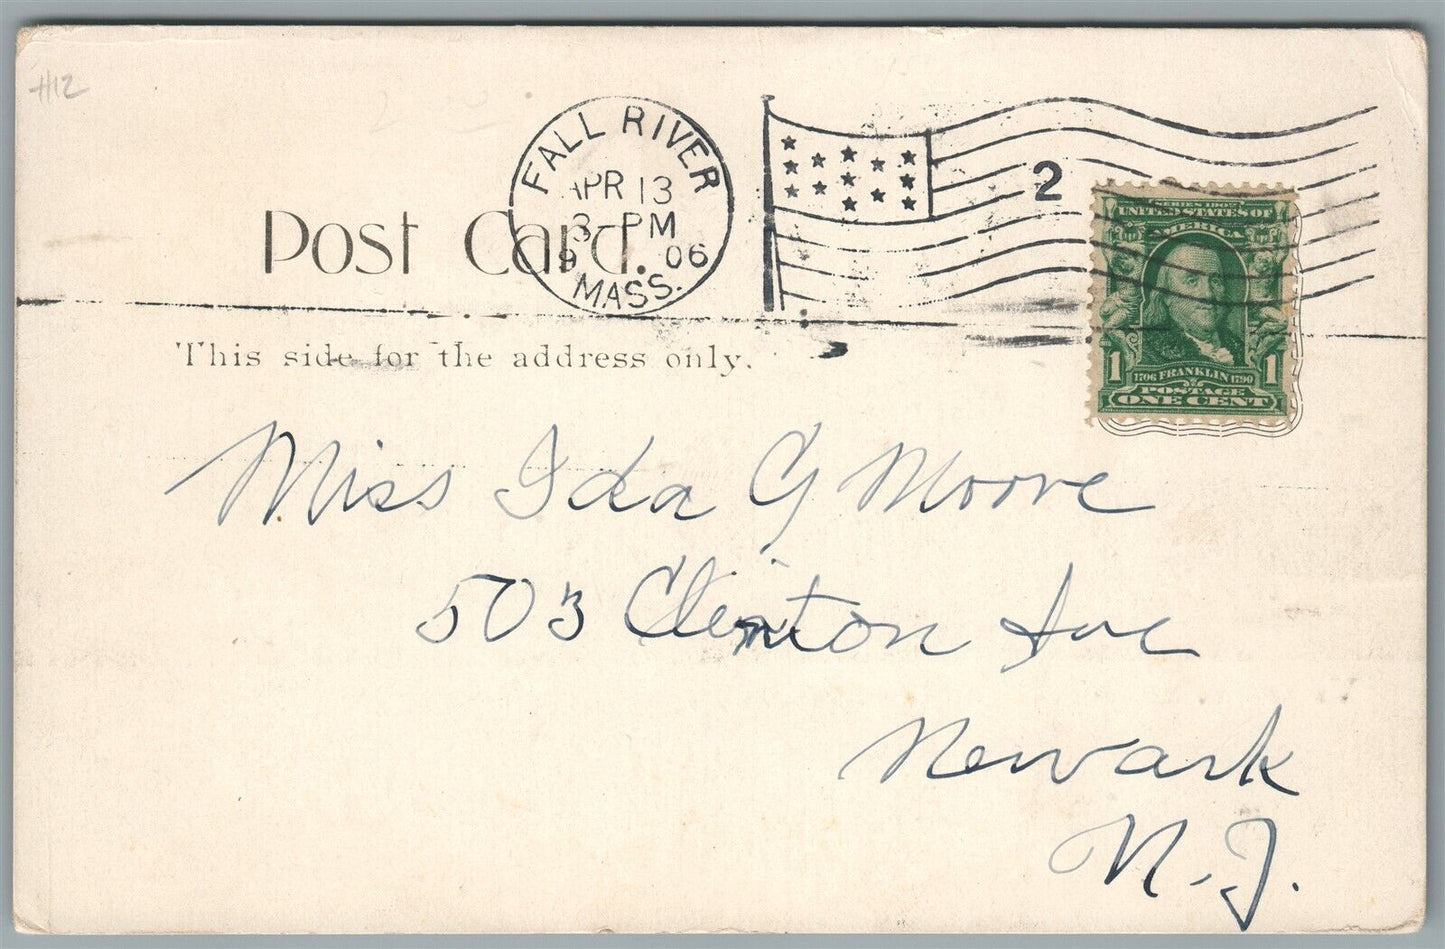 #12
FALL RIVER
APR 13
3-PM
19 06
MASS.
2
Post Card.
SERIES 1902
UNITED STATES OF
AMERICA
1 1706 FRANKLIN 1790 1
POSTAGE
ONE CENT
This side for the address only.
Miss Ida G Moore
503 Clinton Ave
Newark
N.J.